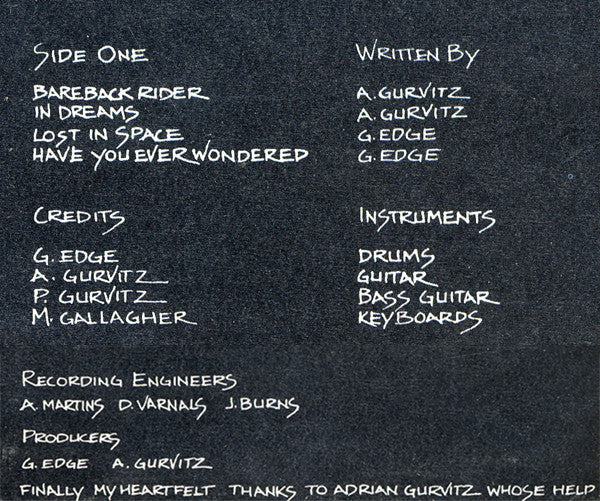 SIDE ONE WRITTEN BY
BAREBACK RIDER A. GURVITZ
IN DREAMS A. GURVITZ
LOST IN SPACE G. EDGE
HAVE YOU EVER WONDERED G. EDGE
CREDITS INSTRUMENTS
G. EDGE DRUMS
A. GURVITZ GUITAR
P. GURVITZ BASS GUITAR
M. GALLAGHER KEYBOARDS
RECORDING ENGINEERS
A. MARTINS D. VARNALS J. BURNS
PRODUCERS
G. EDGE A. GURVITZ
FINALLY MY HEARTFELT THANKS TO ADRIAN GURVITZ WHOSE HELP